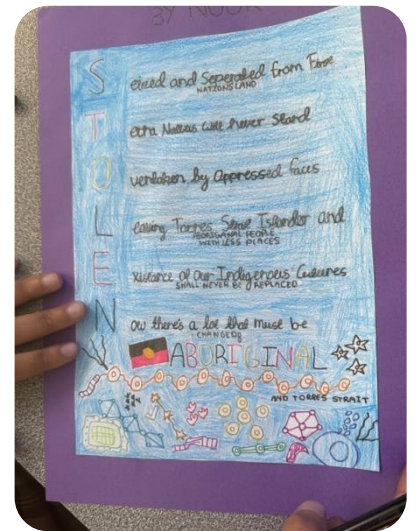 BY NOOR
S eized and Seperated from
NATIONS LAND
T
will never Stand
O vertaken by Oppressed faces
L eaving Torres Strait Islander and
ABORIGINAL PEOPLE
WITH LESS PLACES
E xistance of Our Indigenous Cultures
SHALL NEVER BE REPLACED
N ow there's a lot that must be
CHANGED
ABORIGINAL
AND TORRES STRAIT